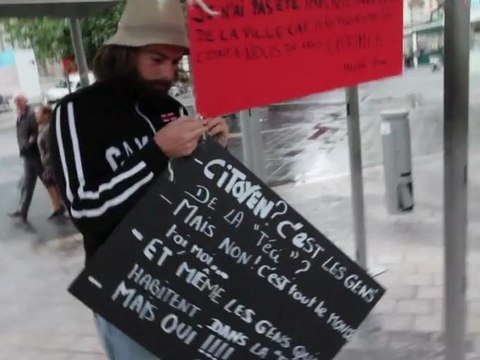 J'N'AI PAS ÉTÉ
DE LA VILLE CAR
C'ÉTAIT À NOUS DE NOUS EXPRIMER
CAN
- CITOYEN? C'EST LES GENS
DE LA "TéCi"?
- MAIS NON! C'EST tout le MONDE
toi moi...
- ET MÊME LES GENS QUI
HABITENT DANS LA
- MAIS OUI !!!!